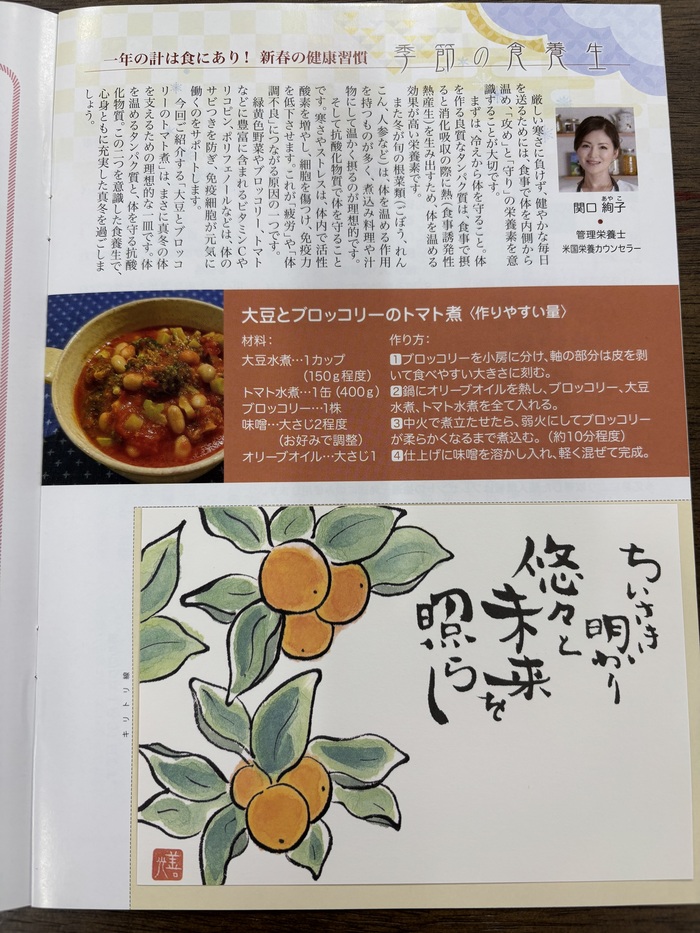 一年の計は食にあり！ 新春の健康習慣
季節の食養生
厳しい寒さに負けず、健やかな毎日
を送るためには、食事で体を内側から
温め、「攻め」と「守り」の栄養素を意
識することが大切です。
まずは、冷えから体を守ること。体
を作る良質なタンパク質は、食事で摂
ると消化吸収の際に熱（食事誘発性
熱産生）を生み出すため、体を温める
効果が高い栄養素です。
また冬が旬の根菜類（ごぼう、れん
こん、人参など）は、体を温める作用
を持つものが多く、煮込み料理や汁
物にして温かく摂るのが理想的です。
そして抗酸化物質で体を守ること
です。寒さやストレスは、体内で活性
酸素を増やし、細胞を傷つけ、免疫力
を低下させます。これが「疲労」や「体
調不良」につながる原因の一つです。
緑黄色野菜やブロッコリー、トマト
などに豊富に含まれるビタミンCや
リコピン、ポリフェノールなどは、体の
サビつきを防ぎ、免疫細胞が元気に
働くのをサポートします。
今回ご紹介する「大豆とブロッコ
リーのトマト煮」は、まさに真冬の体
を支えるための理想的な一皿です。体
を温めるタンパク質と、体を守る抗酸
化物質。この二つを意識した食養生で、
心身ともに充実した真冬を過ごしま
しょう。
関口 絢子
あやこ
管理栄養士
米国栄養カウンセラー
大豆とブロッコリーのトマト煮〈作りやすい量〉
材料：
大豆水煮…1カップ
（150g程度）
トマト水煮…1缶（400g）
ブロッコリー…1株
味噌…大さじ2程度
（お好みで調整）
オリーブオイル…大さじ1
作り方：
1ブロッコリーを小房に分け、軸の部分は皮を剥
いて食べやすい大きさに刻む。
2鍋にオリーブオイルを熱し、ブロッコリー、大豆
水煮、トマト水煮を全て入れる。
3中火で煮立たせたら、弱火にしてブロッコリー
が柔らかくなるまで煮込む。（約10分程度）
4仕上げに味噌を溶かし入れ、軽く混ぜて完成。
ちいさき
明かり
悠々と
未来を
照らし
キリトリ線